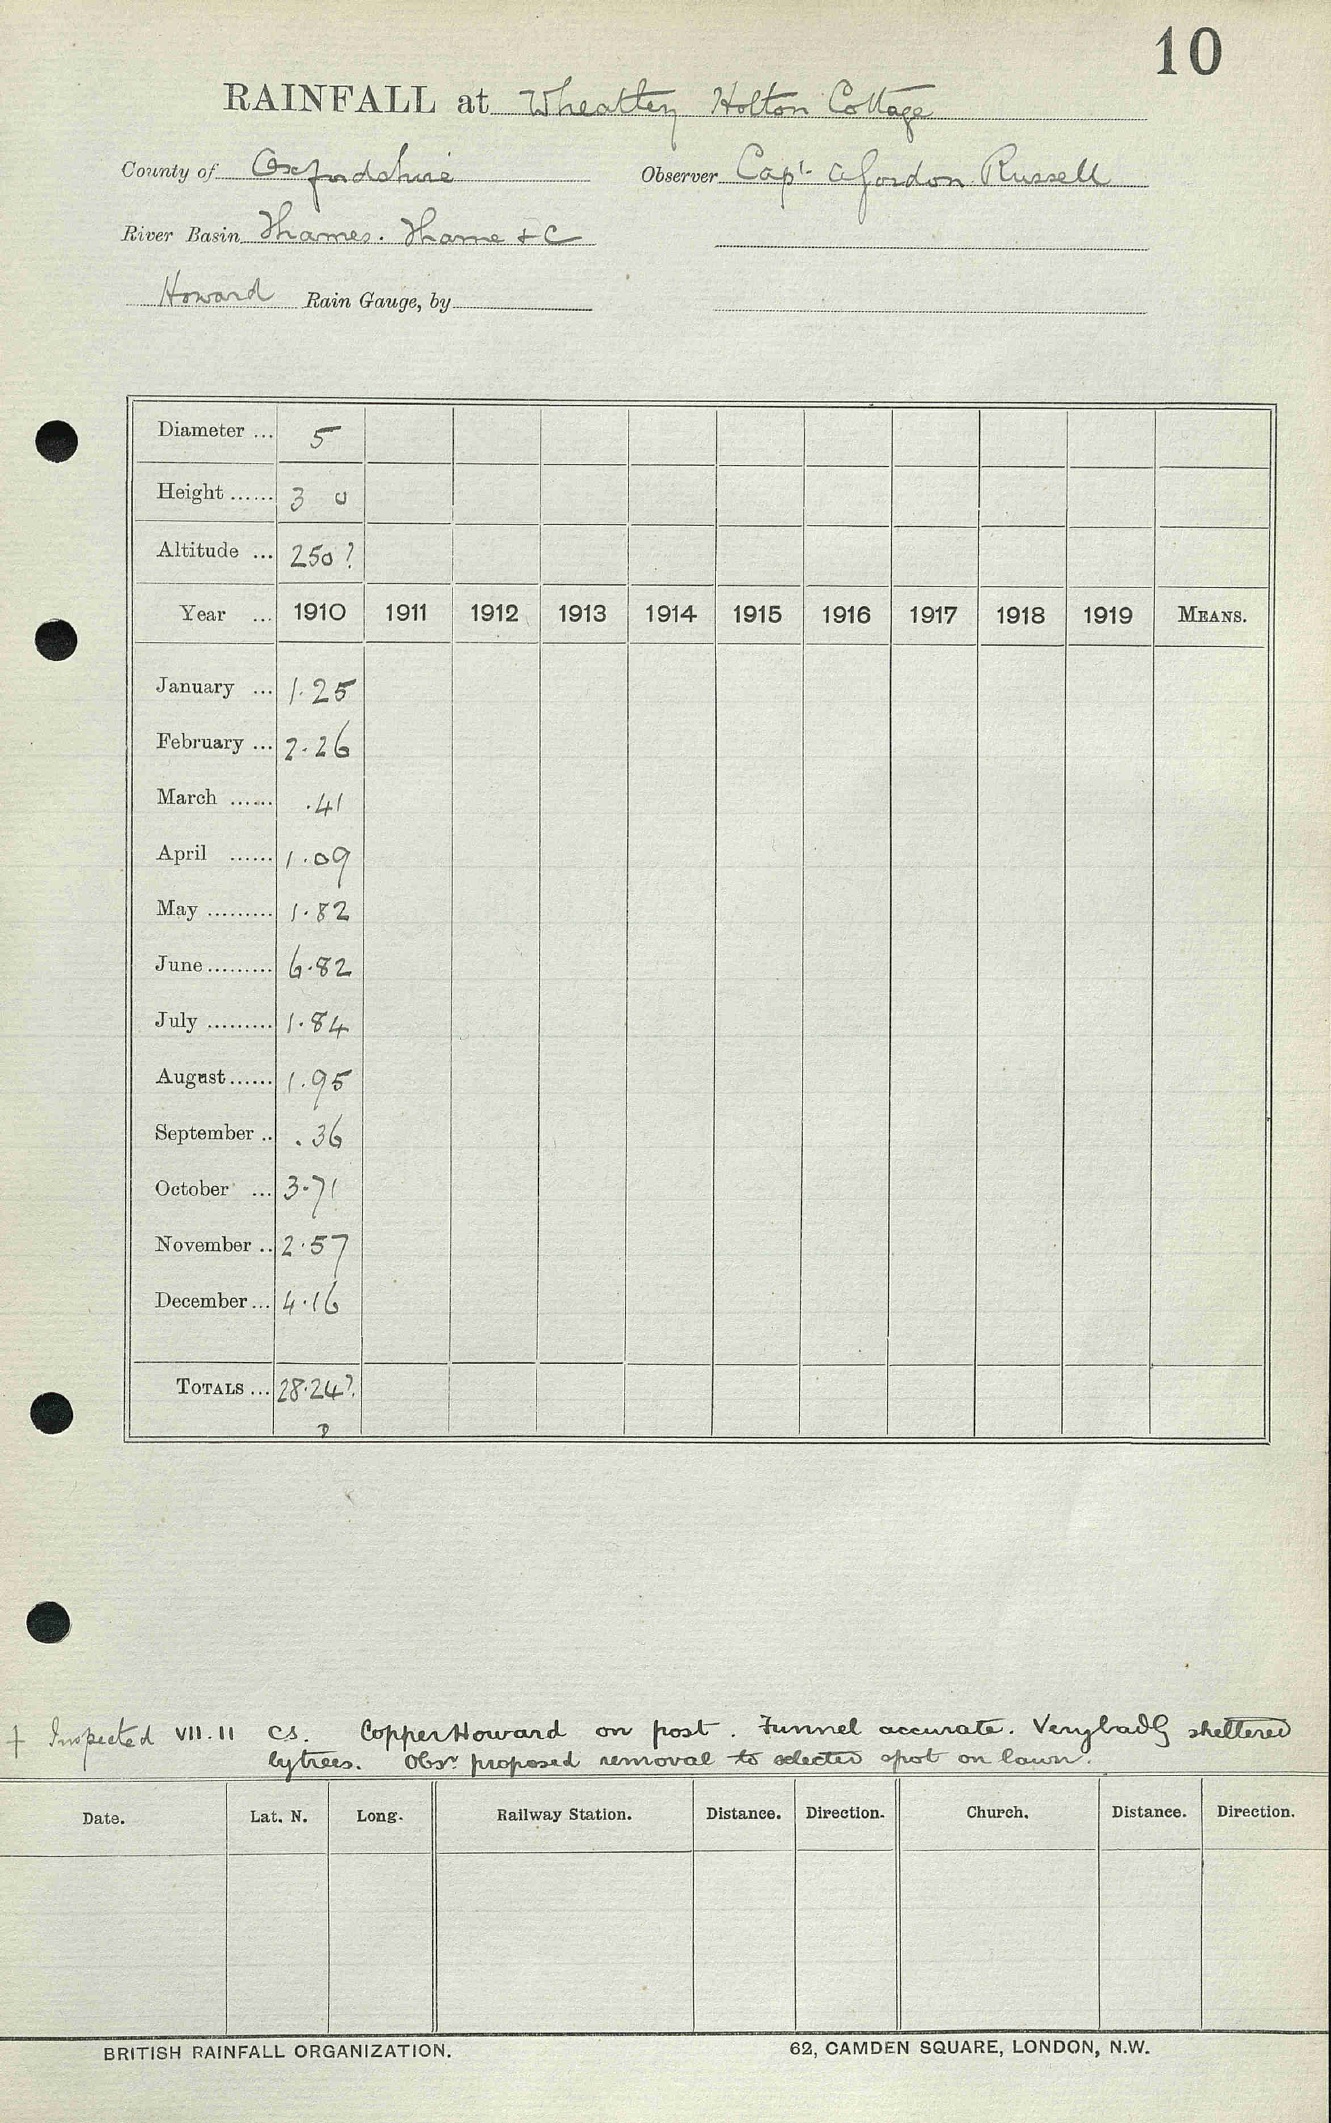 10
RAINFALL at Wheatley Holton Cottage
County of Oxfordshire Observer Capt. A Gordon Russell
River Basin Thames. Thame & C
Howard Rain Gauge, by
Diameter ... 5
Height ...... 3 0
Altitude ... 250?
Year ... 1910 1911 1912 1913 1914 1915 1916 1917 1918 1919 MEANS.
January ... 1.25
February ... 2.26
March ...... .41
April ...... 1.09
May ......... 1.82
June ......... 6.82
July ......... 1.84
August ...... 1.95
September .. .36
October ... 3.71
November .. 2.57
December ... 4.16
TOTALS ... 28.24?
?
+ Inspected VII.11 CS. Copper Howard on post. Funnel accurate. Very badly sheltered
by trees. Obsr. proposed removal to selected spot on lawn.
Date. Lat. N. Long. Railway Station. Distance. Direction. Church. Distance. Direction.
BRITISH RAINFALL ORGANIZATION. 62, CAMDEN SQUARE, LONDON, N.W.